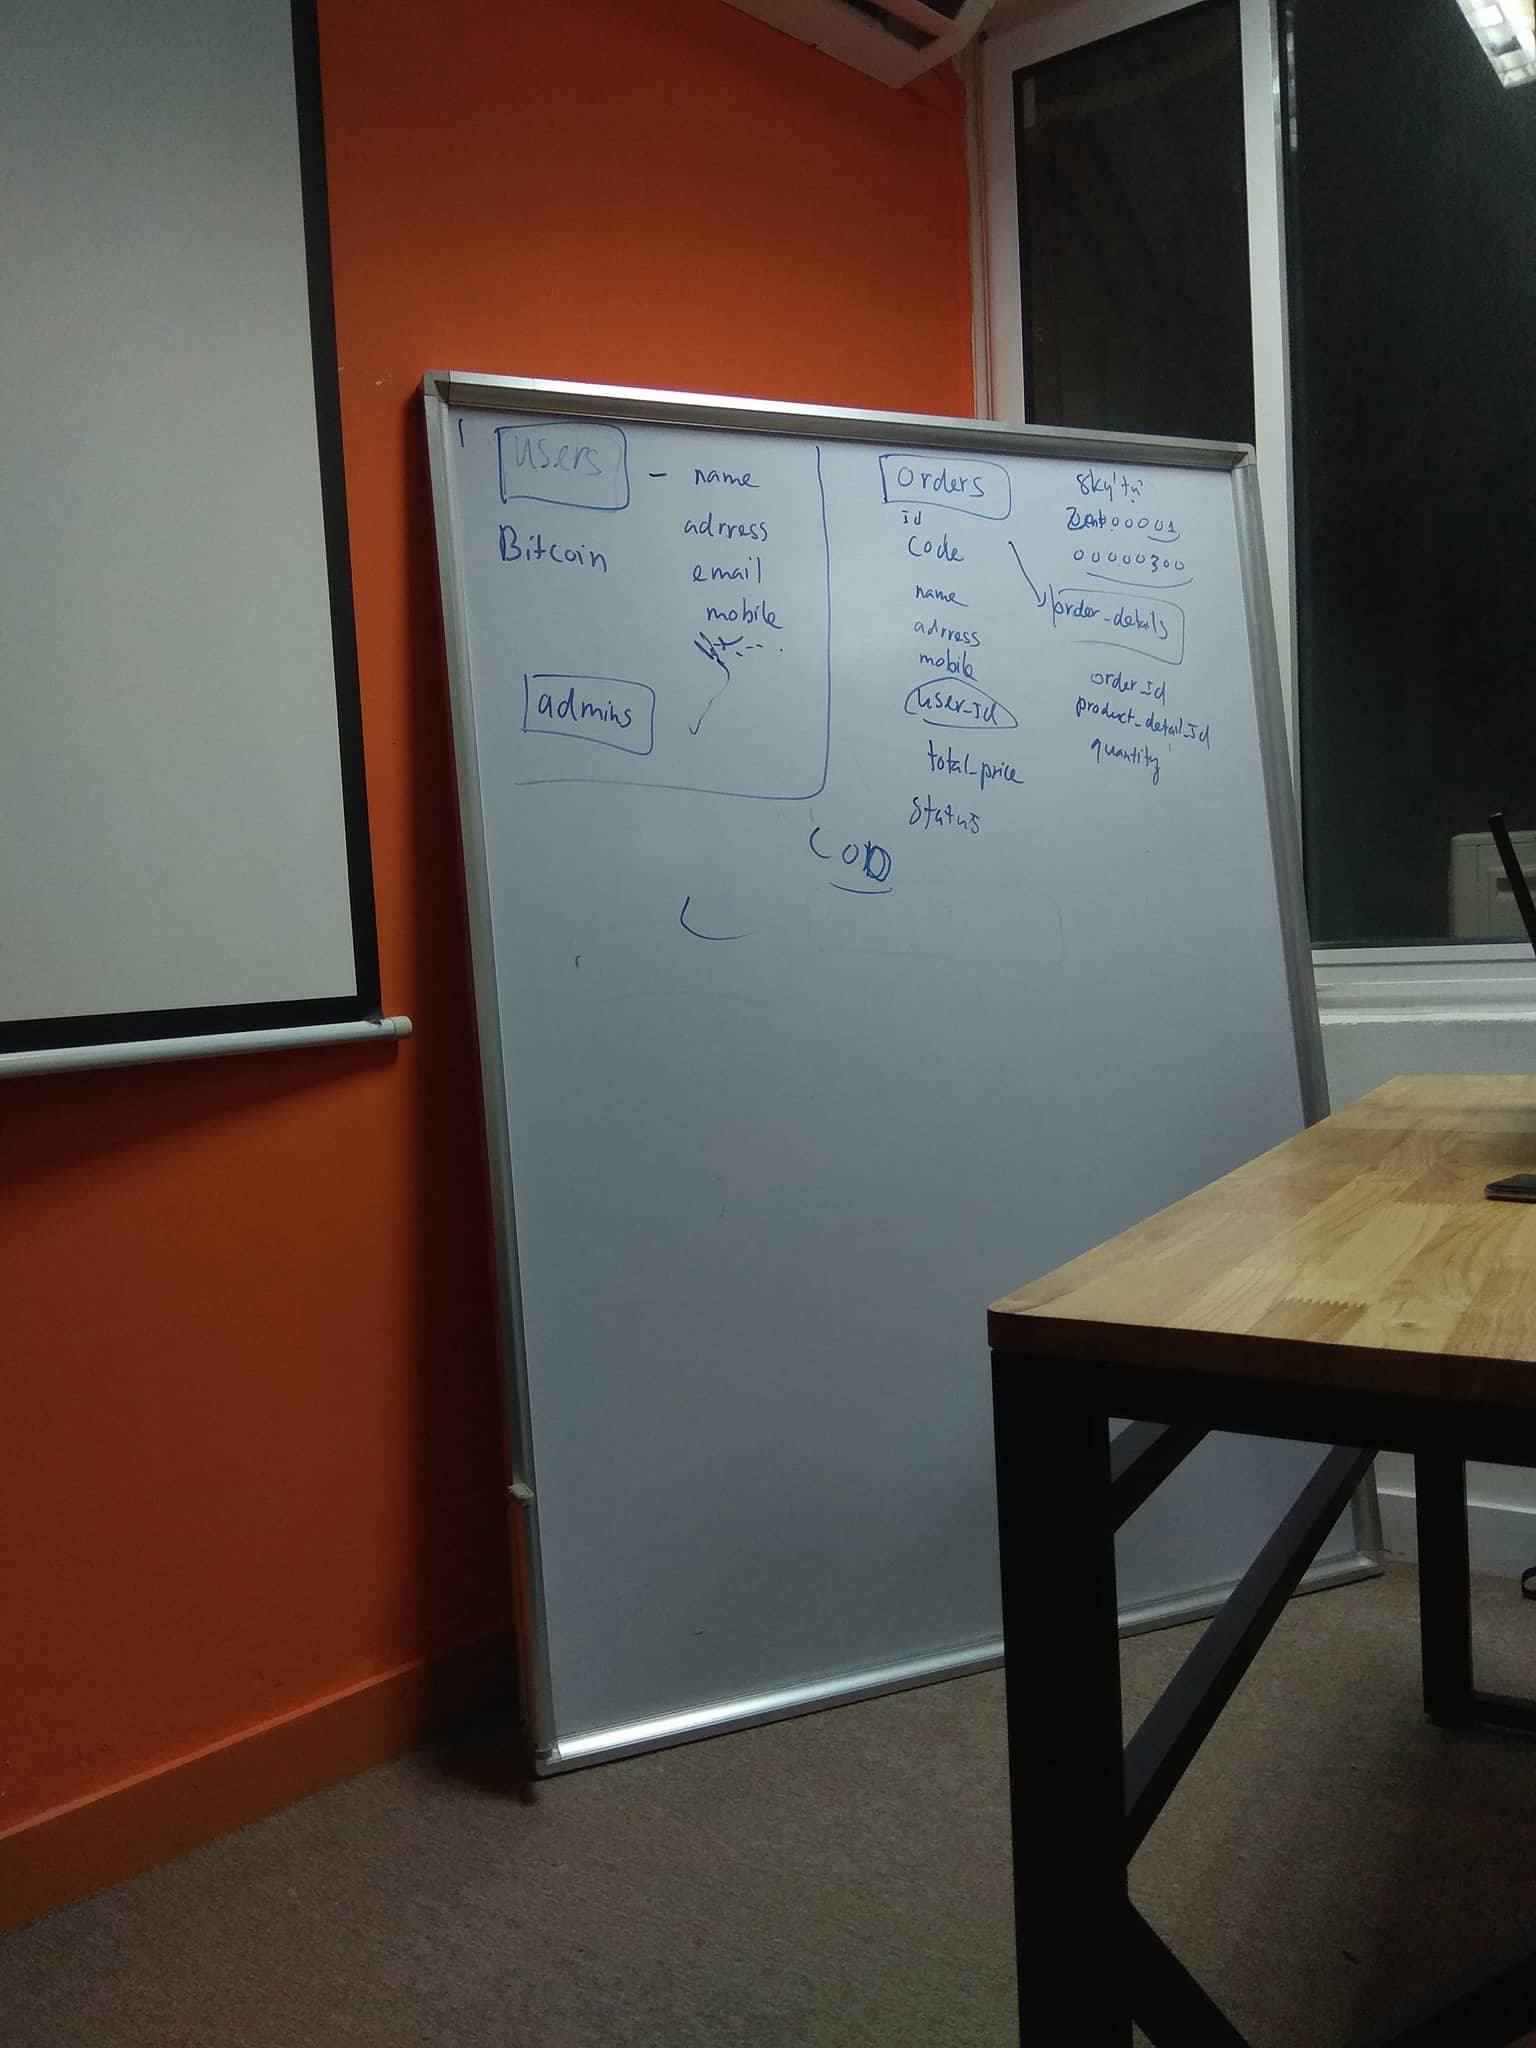 users
Bitcoin
- name
adrress
email
mobile
admins
orders
id
code
name
adrress
mobile
user_id
total_price
status
COD
8 ký tự
Zent00001
00000300
order_details
order_id
product_detail_id
quantity